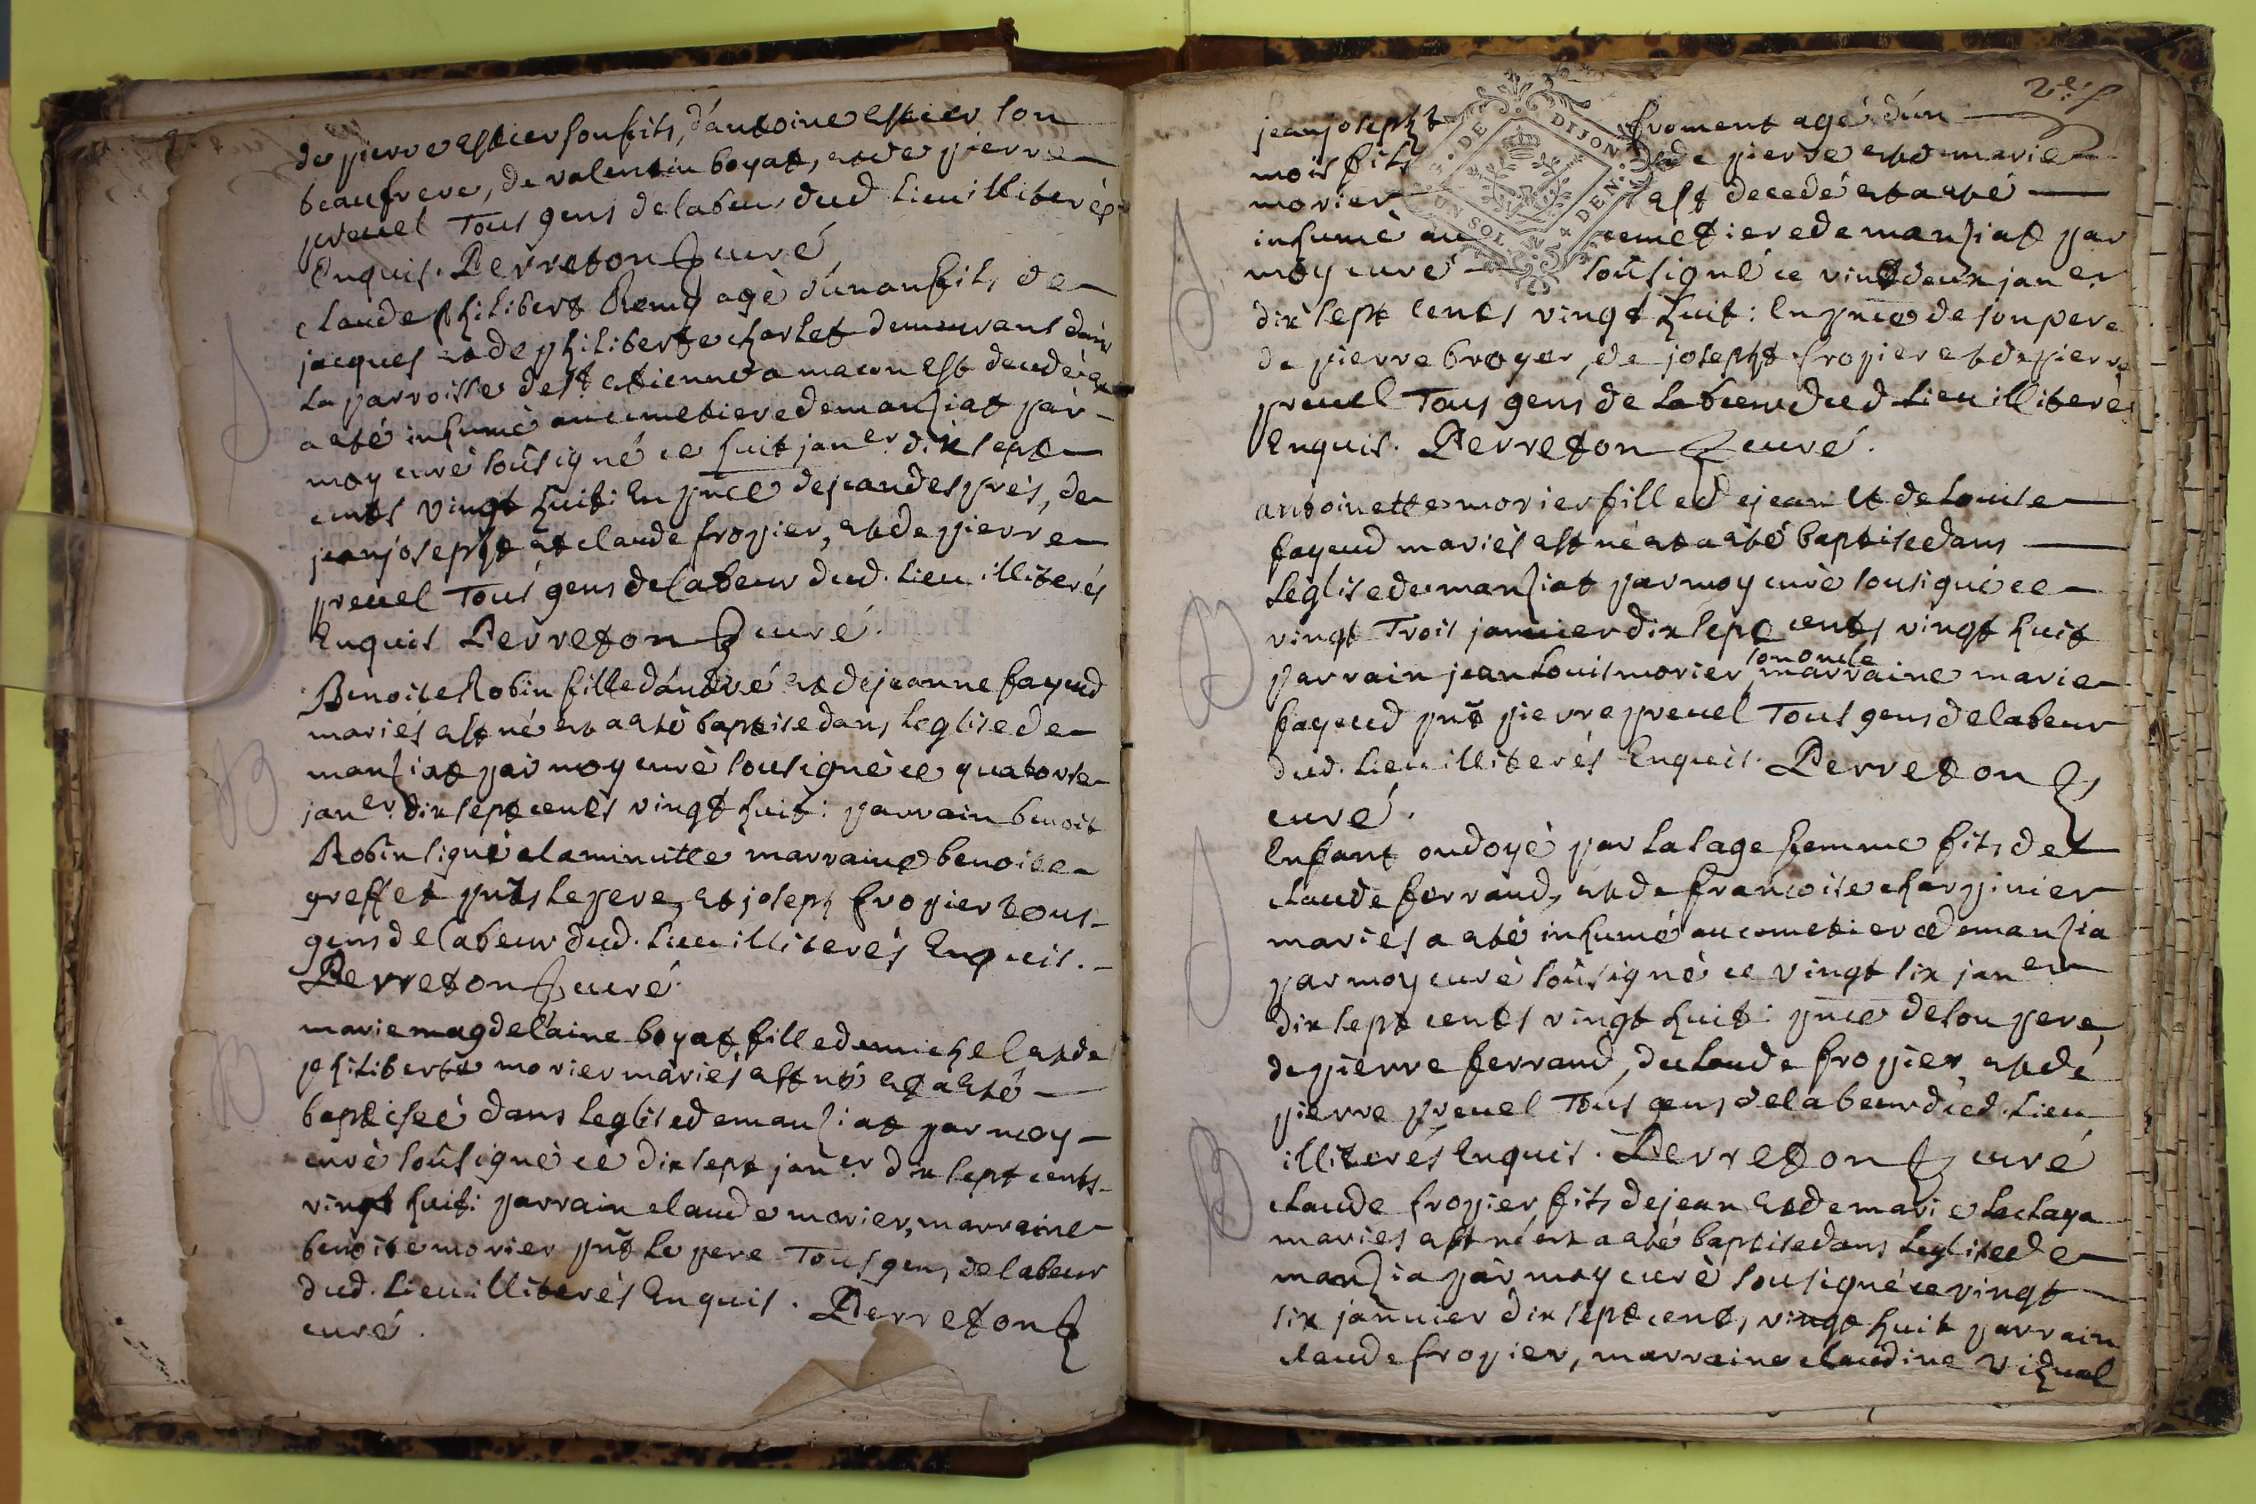 de pierre estier son fils, d'antoine estier son
beaufrere, de valentin boyat, et de pierre
preuel Tous gens de labeur dud Lieu illiterés
Enquis. Perreton curé
claude philibert Remy agé d'un an fils de
jacques et de philiberte charlet demeurans dans
La parroisse de st estienne a macon est decedé et
a esté inhumé au cimetiere de manziat par
moy curé soûsigné ce huit janer dix sept
cents vingt huit: En pnce de jean desprès, de
jean josepht et claude fropier, et de pierre
preuel Tous gens de labeur dud. Lieu illiterés
Enquis Perreton curé.
Benoite Robin fille d'andré et de jeanne fayeud
mariés est né et a esté baptisé dans Leglise de
manziat par moy curé sousigné ce quatorse
janer dix sept cents vingt huit: parrain benoit
Robin signé a la minutte marraine benoite
greffet pnts le pere, et joseph fropier tous
gens de labeur dud. Lieu illiterés Enquis.
Perreton curé.
marie magdelaine boyat fille de michel et de
philiberte morier mariés est né et a esté
baptiseé dans Leglise de manziat par moy
curé soûsigné ce dix sept janer dix sept cents
vingt huit: parrain claude morier, marraine
benoite morier pnt le pere Tous gens de labeur
dud. Lieu illiterés Enquis. Perreton
curé.
2e. f
jean josepht froment agé d'un
mois fils de pierre et de marie
morier est decedé et a esté
inhumé au cemetiere de manziat par
moy curé soûsigné ce vint deux janer
dix sept cents vingt huit: En pnce de son pere
de pierre broyer, de josepht fropier et de pierre
preuel Tous gens de Labeur dud Lieu illiterés
Enquis. Perreton curé.
G. DE DIJON
UN SOL 4 DEN.
antoinette morier fille de jean et de Louise
fayeud mariés est né et a esté baptisé dans
Leglise de manziat par moy curé sousigné ce
vingt Trois januier dix sept cents vingt huit
son oncle
parrain jean Louis morier, marraine marie
fayeud pnt pierre preuel Tous gens de labeur
dud. Lieu illiterés Enquis. Perreton
curé.
Enfant ondoyé par La sage femme fils de
claude ferraud, et de francoise charpinier
mariés a esté inhumé au cemetiere de manzia
par moy curé soûsigné ce vingt six janer
dix sept cents vingt huit: pnce de son pere,
de pierre ferraud, de claude fropier, et de
pierre preuel Tous gens de labeur dud. Lieu
illiterés Enquis. Perreton curé
claude fropier fils de jean et de marie
mariés est né et a esté baptisé dans Leglise de
manzia par moy curé sousigné ce vingt
six januier dix sept cents vingt huit parrain
claude fropier, marraine claudine